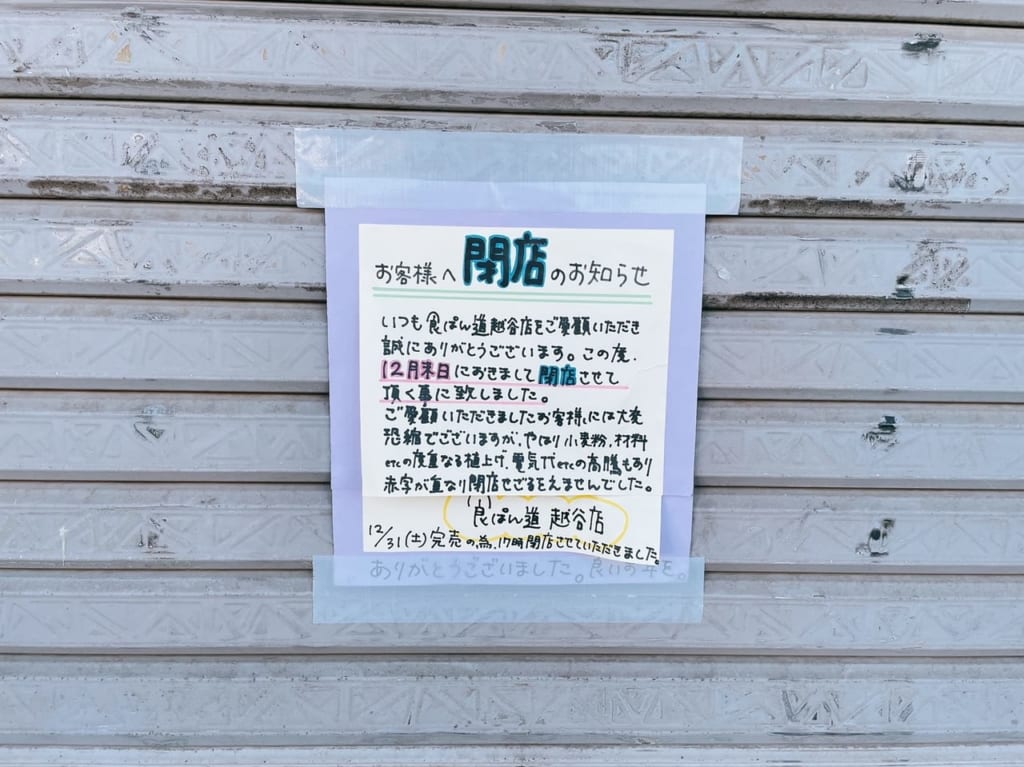 お客様へ閉店のお知らせ
いつも食ぱん道越谷店をご愛顧いただき
誠にありがとうございます。この度、
12月末日におきまして閉店させて
頂く事に致しました。
ご愛顧いただきましたお客様には大変
恐縮でございますが、やはり小麦粉、材料
etcの度重なる値上げ、電気代etcの高騰もあり
赤字が重なり閉店せざるをえませんでした。
食ぱん道 越谷店
12/31(土)完売の為、17時閉店させていただきました。
ありがとうございました。良いお年を。